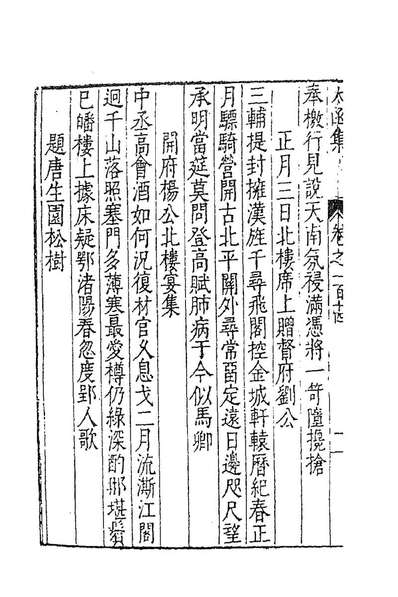 太函集 卷之一百十四
奉檄行見說天南氛祲滿憑將一箭墮攙搶
正月三日北樓席上贈督府劉公
三輔提封擁漢旌千尋飛閣控金城軒轅曆紀春正
月驃騎營開古北平關外尋常留定遠日邊咫尺望
承明當筵莫問登高賦肺病于今似馬卿
開府楊公北樓宴集
中丞高會酒如何況復材官久息戈二月流澌江閣
迥千山落照塞門多薄寒最愛樽仍綠深酌那堪鬢
巳皤樓上據床疑鄂渚陽春忽度郢人歌
題唐生園松樹